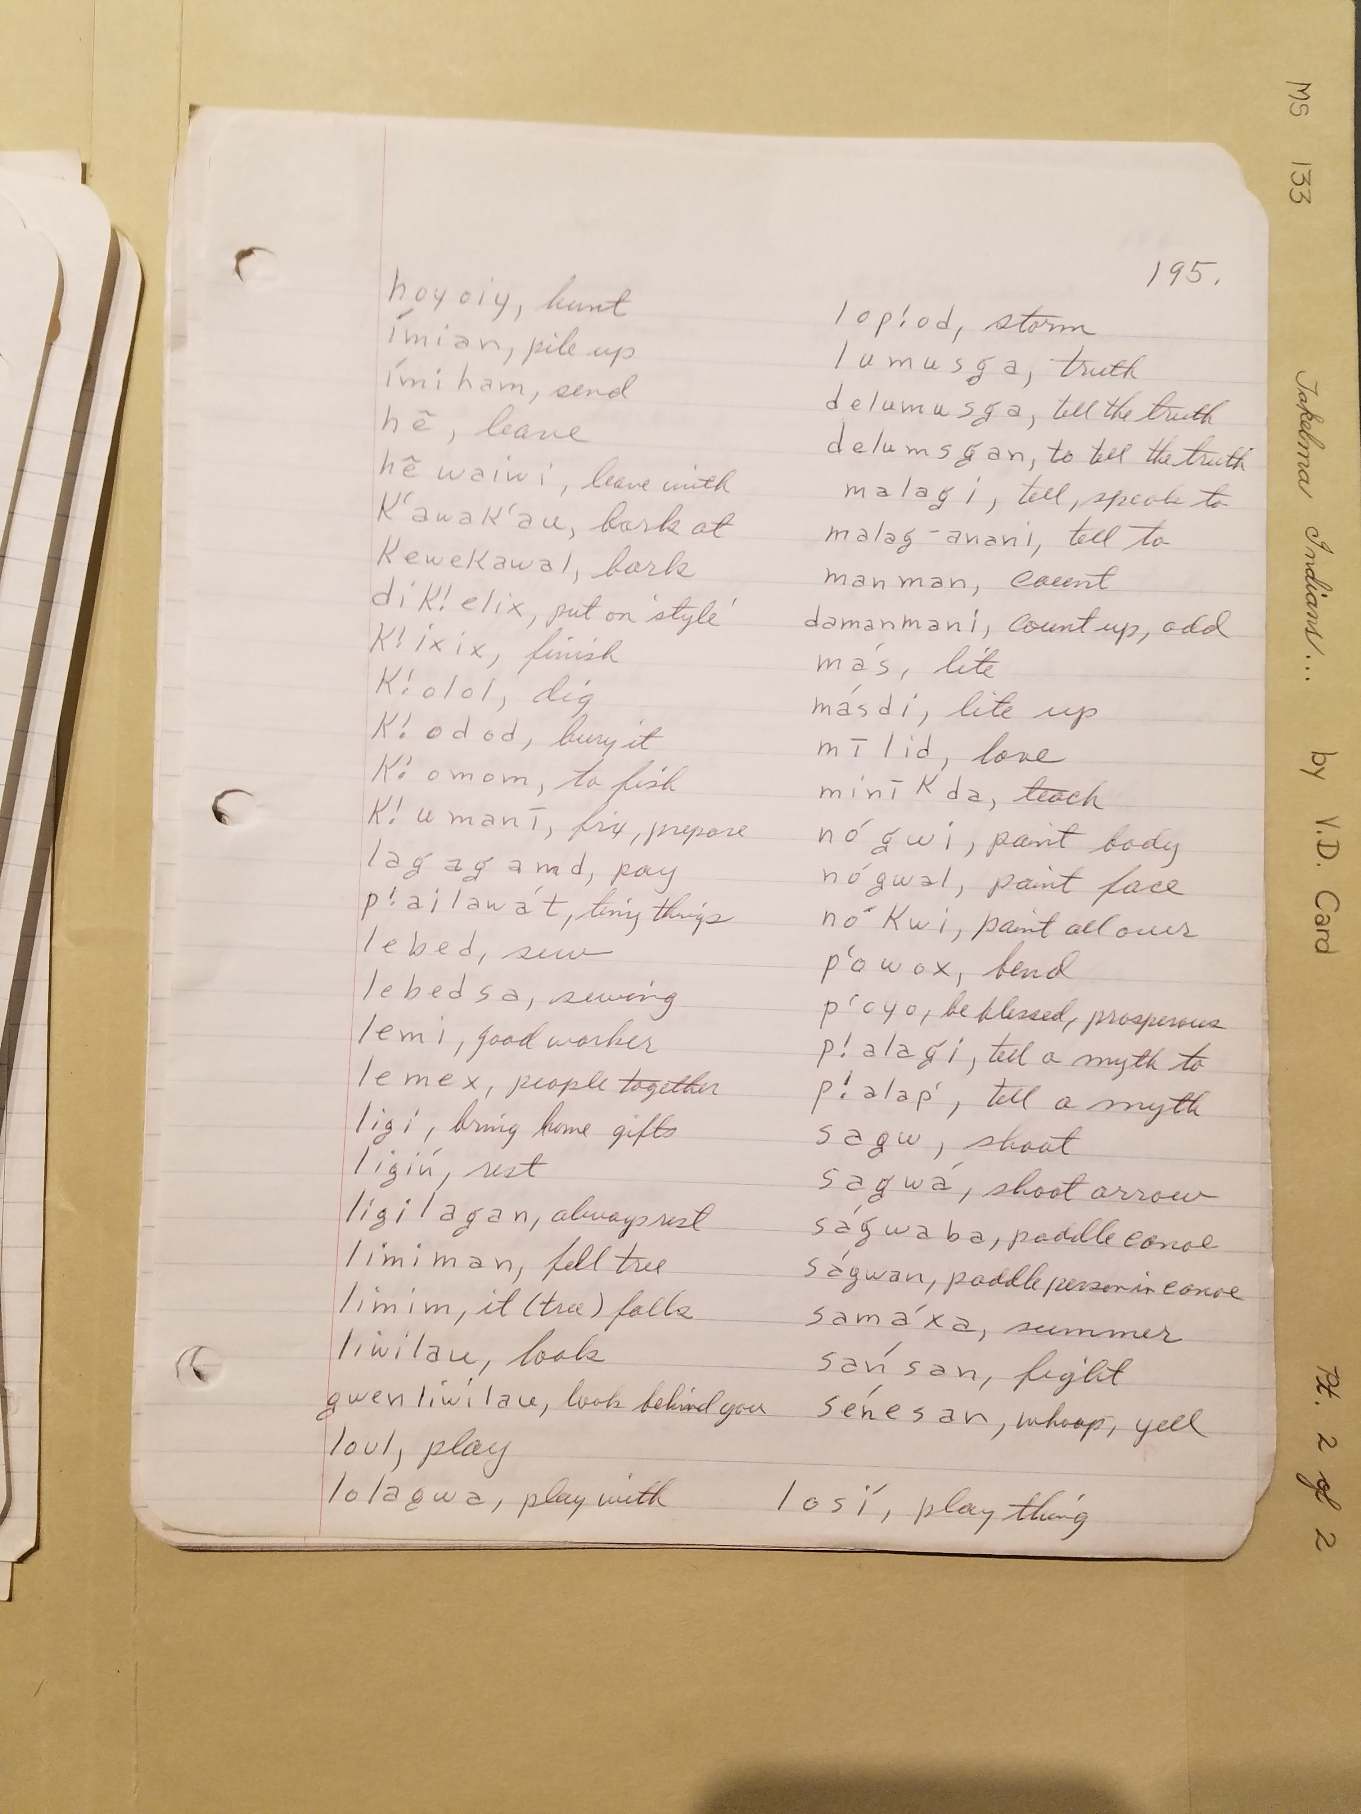 195.
hoyoiy, hunt
ímian, pile up
ímiham, send
hẽ, leave
hẽ waiwi, leave with
K'awaK'au, bark at
KeweKawal, bark
di K! elix, put on 'style'
K! ixix, finish
K! olol, dig
K! odod, bury it
K! omom, to fish
K! umanī, fix, prepare
lagagamd, pay
p!ailawát, tiny things
lebed, sew
lebedsa, sewing
lemi, good worker
lemex, people together
ligi, bring home gifts
ligiń, rest
ligilagan, always rest
limiman, fell tree
limim, it (tree) falls
liwilau, look
gwenliwilau, look behind you
loul, play
lolagwa, play with
lop!od, storm
lumusga, truth
delumusga, tell the truth
delumsgan, to tell the truth
malagi, tell, speak to
malag-anani, tell to
manman, count
damanmani, count up, add
más, lite
másdi, lite up
mīlid, love
minīKda, teach
nó gwi, paint body
nógwal, paint face
nó Kwi, paint all over
p'owox, bend
p'oyo, be blessed, prosperous
p! alagi, tell a myth to
p! alap', tell a myth
sagw, shoot
sagwá, shoot arrow
ságwaba, paddle canoe
ságwan, paddle person in canoe
samáxa, summer
sań san, fight
séńesan, whoop, yell
losí, play thing
MS 133 Takelma Indians... by V.D. Card Pt. 2 of 2